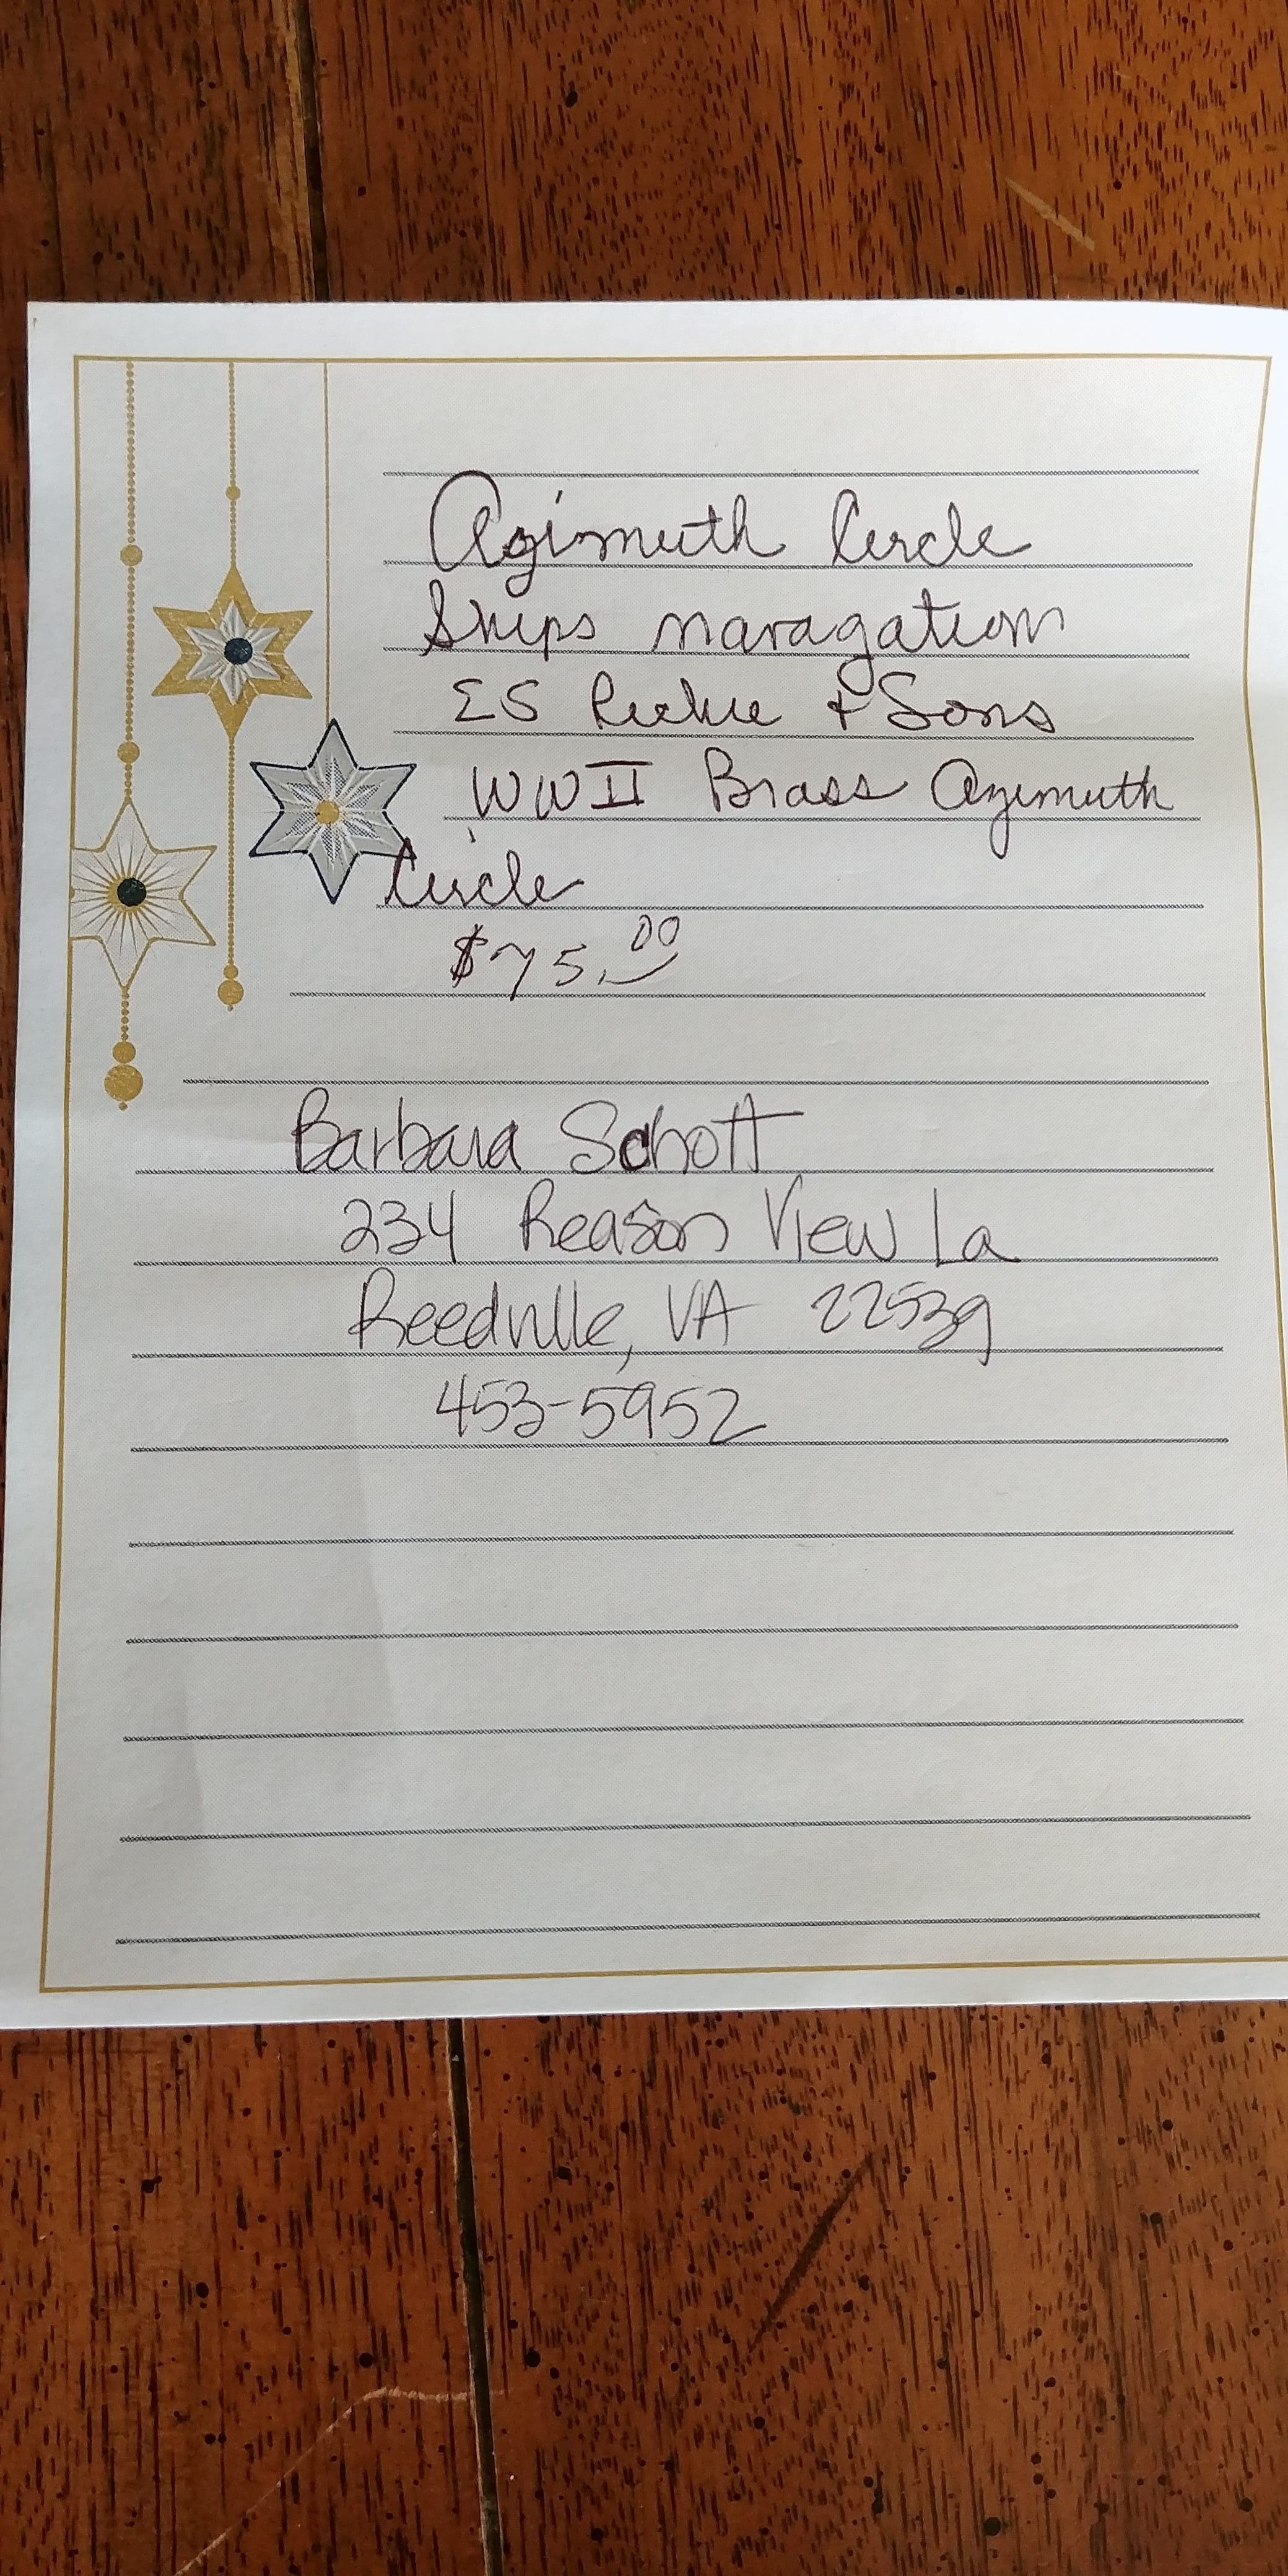 Azimuth Circle
Ships navagation
ES Richie + Sons
WW II Brass Azimuth
Circle
$75.00
Barbara Schott
234 Reason View La
Reedville, VA 22539
453-5952